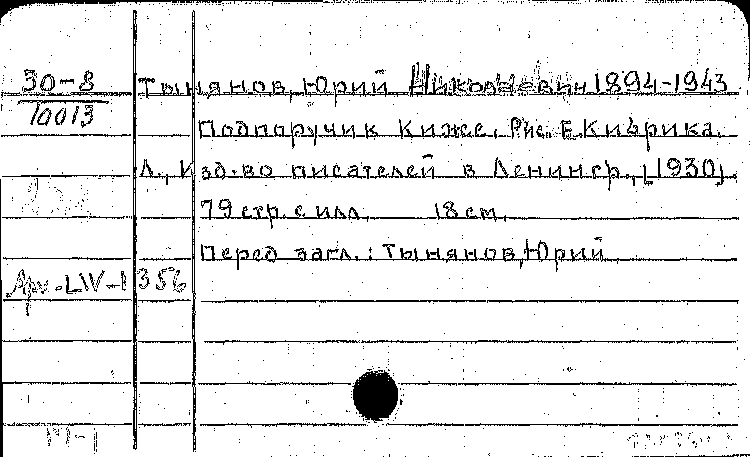 30-8 Тынянов, Юрий Николаевич 1894-1943
10013
Подпоручик Киже. Рис. Е. Кибрика.
Л., Изд-во писателей в Ленингр., [1930].
79 стр. с илл. 18 см.
Перед загл.: Тынянов, Юрий
Арх. LIV-1 356